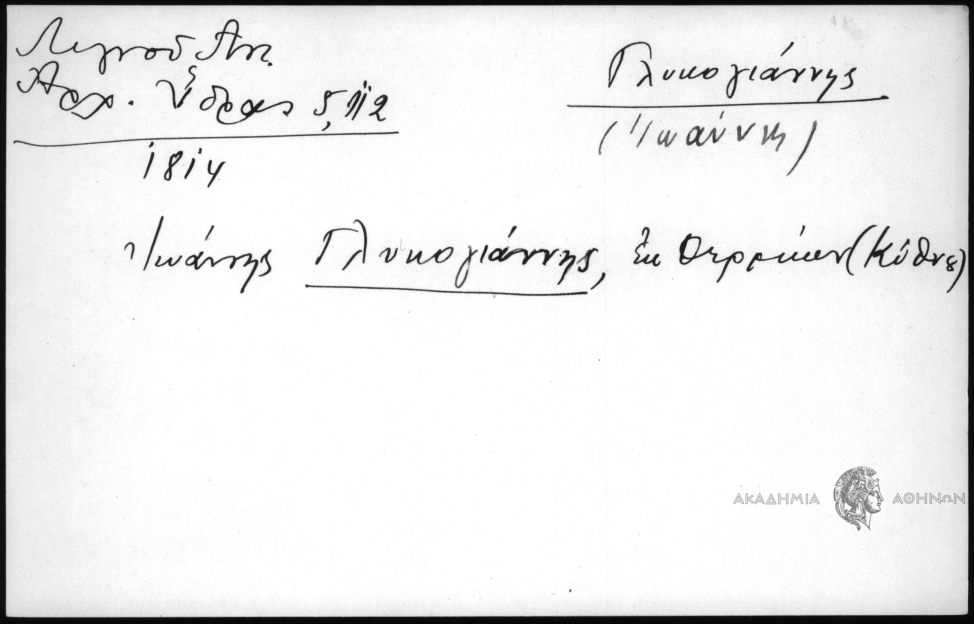 Λιγνοῦ Ἀντ.
Ἀρχ. Ὕδρας 5, 112
1814
Γλυκογιάννης
(Ἰωάννης)
Ἰωάννης Γλυκογιάννης, ἐκ Θερμίων (Κύθνου)
ΑΚΑΔΗΜΙΑ ΑΘΗΝΩΝ